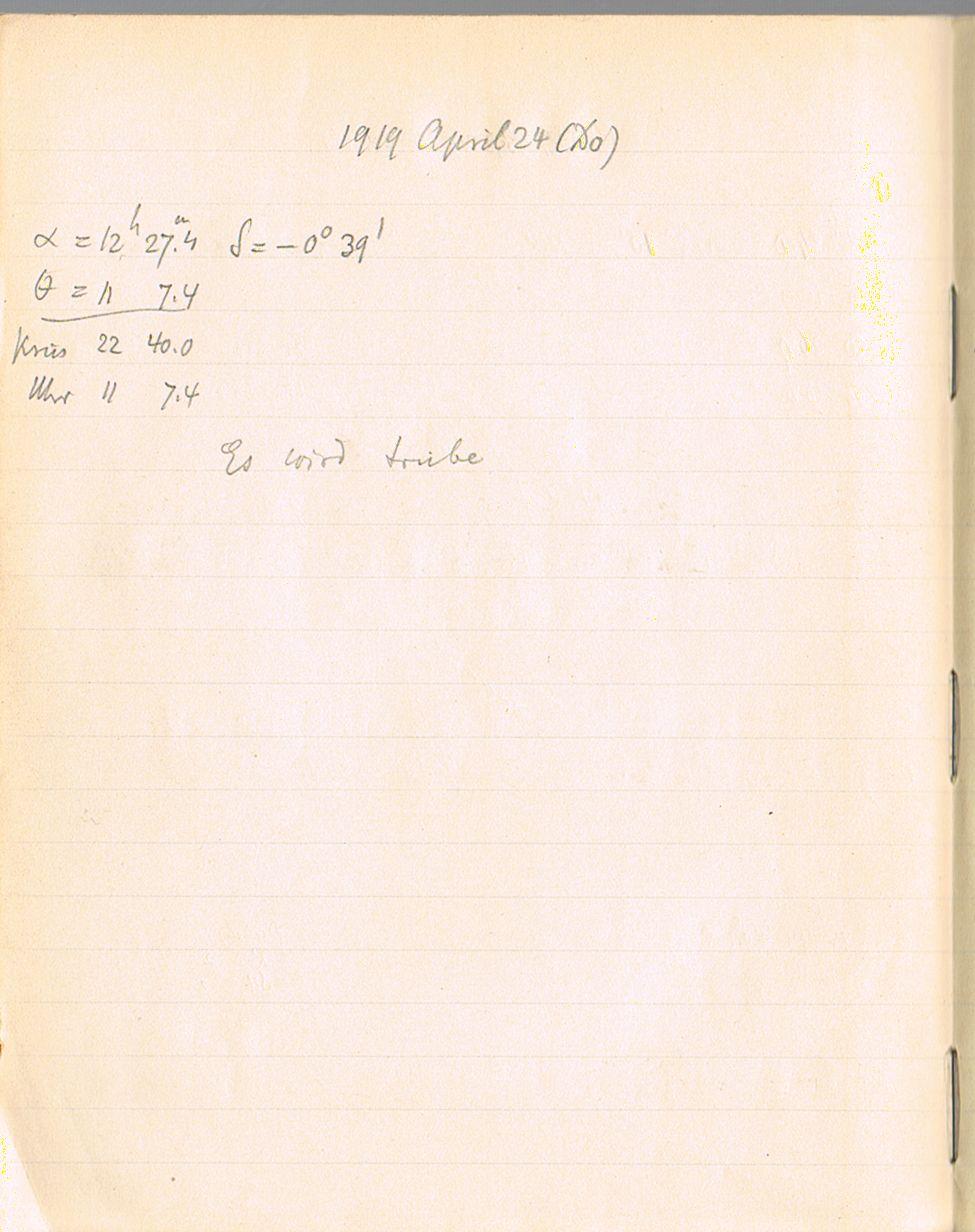 1919 April 24 (Do)
α = 12ʰ 27.ᵐ4 δ = −0° 39'
θ = 11 7.4
Kreis 22 40.0
Uhr 11 7.4
Es wird trübe